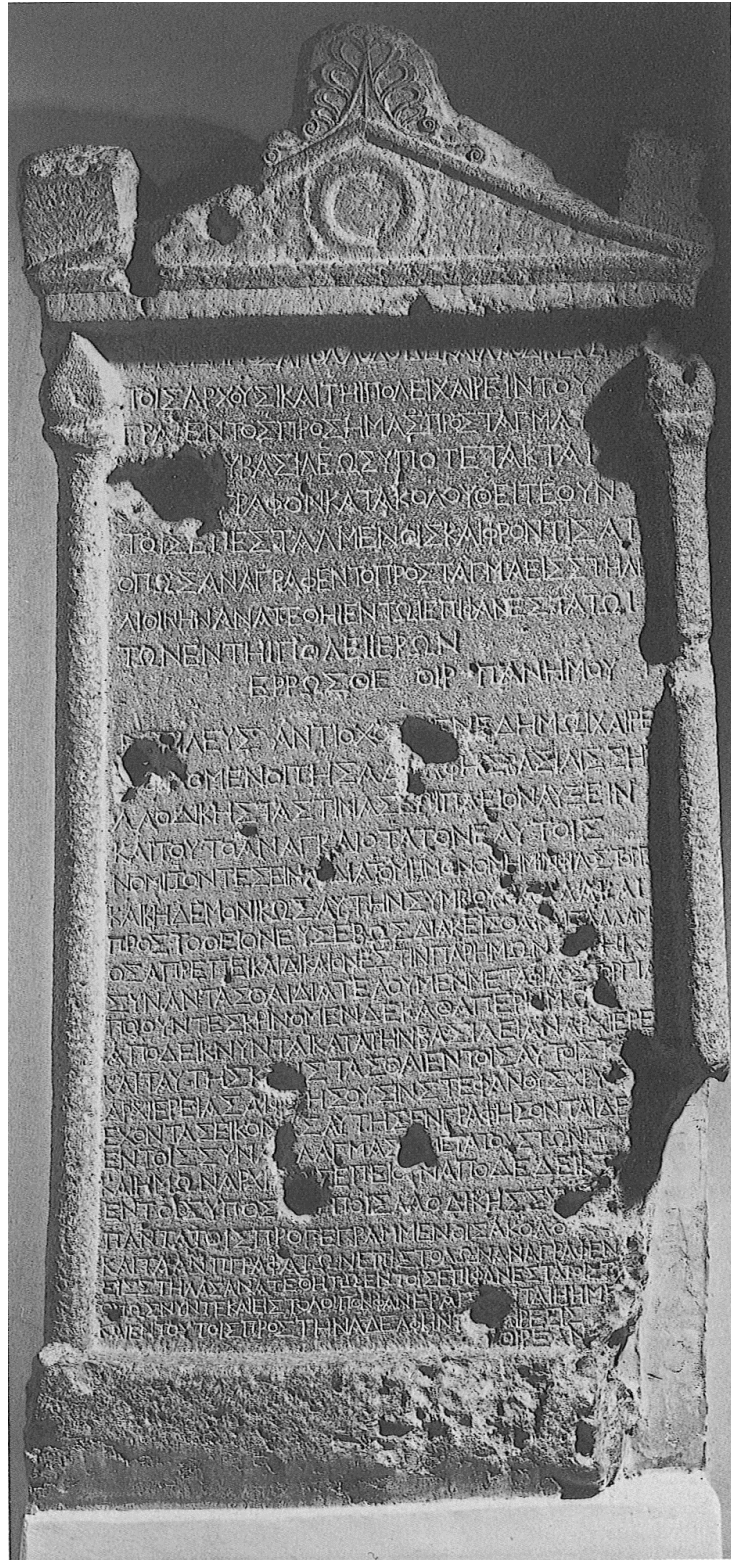 ΑΠΟΛΛΟΔΟΤΩΙΚΑΙΛΑΟΔΙΚΕΩΝ
ΤΟΙΣΑΡΧΟΥΣΙΚΑΙΤΗΙΠΟΛΕΙΧΑΙΡΕΙΝΤΟΥ
ΓΡΑΦΕΝΤΟΣΠΡΟΣΗΜΑΣΠΡΟΣΤΑΓΜΑ
ΥΒΑΣΙΛΕΩΣΥΠΟΤΕΤΑΚΤΑΙ
ΓΡΑΦΟΝΚΑΤΑΚΟΛΟΥΘΕΙΤΕΟΥΝ
ΤΟΙΣΕΠΕΣΤΑΛΜΕΝΟΙΣΚΑΙΦΡΟΝΤΙΣΑΤ
ΟΠΩΣΑΝΑΓΡΑΦΕΝΤΟΠΡΟΣΤΑΓΜΑΕΙΣΣΤΗΛ
ΛΙΘΙΝΗΝΑΝΑΤΕΘΗΙΕΝΤΩΙΕΠΙΦΑΝΕΣΤΑΤΩΙ
ΤΩΝΕΝΤΗΙΠΟΛΕΙΙΕΡΩΝ
ΕΡΡΩΣΘΕ ΘΙΡ ΠΑΝΗΜΟΥ
ΙΛΕΥΣ ΑΝΤΙΟΧ ΕΝΕΔΗΜΩΙΧΑΙΡΕ
ΟΜΕΝΟΙΤΗΣΑΔ ΦΗΣΒΑΣΙΛΙΣΣΗ
ΛΑΟΔΙΚΗΣΤΑΣΤΙΜΑΣΕΠΙΠΛΕΙΟΝΑΥΞΕΙΝ
ΚΑΙΤΟΥΤΟΑΝΑΓΚΑΙΟΤΑΤΟΝΕΑΥΤΟΙΣ
ΝΟΜΙΖΟΝΤΕΣΕΙΝΑΙΔΙΑΤΟΜΗΜΟΝΟΝΗΜΙΝΦΙΛΟΣΤΟΡΓ
ΚΑΙΚΗΔΕΜΟΝΙΚΩΣΑΥΤΗΝΣΥΜΒΙΟΥΝ ΑΛΛΑΚΑΙ
ΠΡΟΣΤΟΘΕΙΟΝΕΥΣΕΒΩΣΔΙΑΚΕΙΣΘΑΙ ΑΛΛΑ
ΟΣΑΠΡΕΠΕΙΚΑΙΔΙΚΑΙΟΝΕΣΤΙΝΠΑΡΗΜΩΝ
ΣΥΝΑΝΤΑΣΘΑΙΔΙΑΤΕΛΟΥΜΕΝΜΕΤΑΦΙΛΟΣΤΟΡΓΙΑ
ΠΟΙΟΥΝΤΕΣΚΡΙΝΟΜΕΝΔΕΚΑΘΑΠΕΡΗΜΩ
ΑΠΟΔΕΙΚΝΥΝΤΑΙΚΑΤΑΤΗΝΒΑΣΙΛΕΙΑΝΑΡΧΙΕΡΕ
ΚΑΙΤΑΥΤΗΣΚ ΙΣΤΑΣΘΑΙΕΝΤΟΙΣΑΥΤΟΙΣΤ
ΑΡΧΙΕΡΕΙΑΣΑΙΦΟΡΗΣΟΥΣΙΝΣΤΕΦΑΝΟΥΣΧΡΥ
ΕΧΟΝΤΑΣΕΙΚΟΝ ΑΥΤΗΣΕΝΓΡΑΦΗΣΟΝΤΑΙΔΕ
ΕΝΤΟΙΣΣΥΝ ΛΛΑΓΜΑΣΙ ΜΕΤΑΤΟΥΣΤΩΝΠ
ΚΑΙΗΜΩΝΑΡΧ ΕΠΕΙΟΥΝΑΠΟΔΕΔΕΙΚ
ΕΝΤΟΙΣΥΠΟΣ ΠΟΙΣΛΑΟΔΙΚΗΣ
ΠΑΝΤΑΤΟΙΣΠΡΟΓΕΓΡΑΜΜΕΝΟΙΣΑΚΟΛΟ
ΚΑΙΤΑΑΝΤΙΓΡΑΦΑΤΩΝΕΠΙΣΤΟΛΩΝΑΝΑΓΡΑΦΕΝ
ΕΙΣΣΤΗΛΑΣΑΝΑΤΕΘΗΤΩΕΝΤΟΙΣΕΠΙΦΑΝΕΣΤΑΤΟΙΣ
ΟΠΩΣΝΥΝΤΕΚΑΙΕΙΣΤΟΛΟΙΠΟΝΦΑΝΕΡΑ ΤΑΙΗΗΜΕ
ΚΑΙΕΝΤΟΥΤΟΙΣΠΡΟΣΤΗΝΑΔΕΛΦΗΝ ΑΙΡΕΣΙΣ